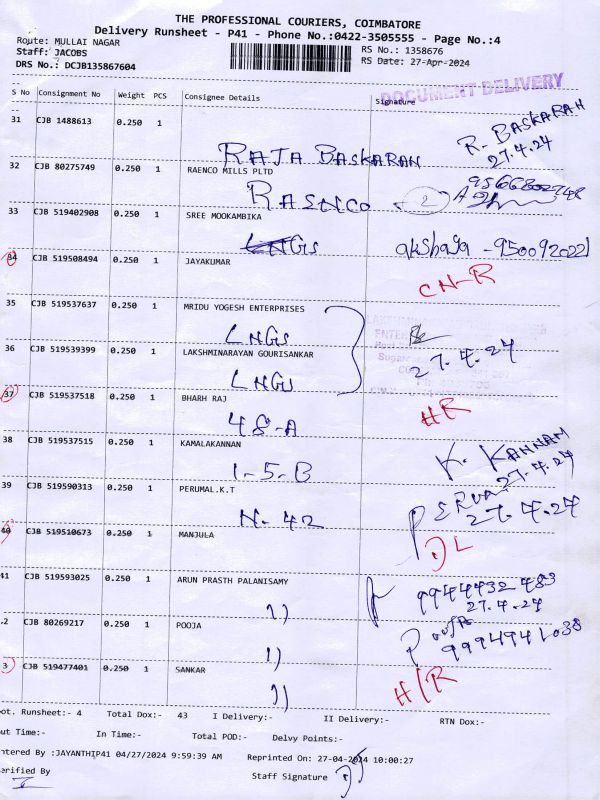 THE PROFESSIONAL COURIERS, COIMBATORE
Delivery Runsheet - P41 - Phone No.:0422-3505555 - Page No.:4
Route: MULLAI NAGAR
RS No.: 1358676
Staff: JACOBS
RS Date: 27-Apr-2024
DRS No.: DCJB135867604
DOCUMENT DELIVERY
S No Consignment No Weight PCS Consignee Details Signature
31 CJB 1488613 0.250 1
RAJA BASKARAN R. BASKARAN
27.4.24
32 CJB 80275749 0.250 1 RAENCO MILLS PLTD
RASNCO 2
33 CJB 519402908 0.250 1 SREE MOOKAMBIKA
LNGS akshaya -9500920221
34 CJB 519508494 0.250 1 JAYAKUMAR
CN-R
35 CJB 519537637 0.250 1 MRIDU YOGESH ENTERPRISES
LNGS
36 CJB 519539399 0.250 1 LAKSHMINARAYAN GOURISANKAR
LNGS 27.4.24
37 CJB 519537518 0.250 1 BHARH RAJ
48-A HR
38 CJB 519537515 0.250 1 KAMALAKANNAN
1-5-B K. KANNAN
27.4.24
39 CJB 519590313 0.250 1 PERUMAL.K.T
N-42 27.4.24
40 CJB 519510673 0.250 1 MANJULA
DL
41 CJB 519593025 0.250 1 ARUN PRASTH PALANISAMY
1) 9944432483
27.4.24
.2 CJB 80269217 0.250 1 POOJA
1) 9994941038
3 CJB 519477401 0.250 1 SANKAR
1) H/R
ot. Runsheet:- 4 Total Dox:- 43 I Delivery:- II Delivery:- RTN Dox:-
ut Time:- In Time:- Total POD:- Delvy Points:-
ntered By :JAYANTHIP41 04/27/2024 9:59:39 AM Reprinted On: 27-04-2024 10:00:27
erified By Staff Signature